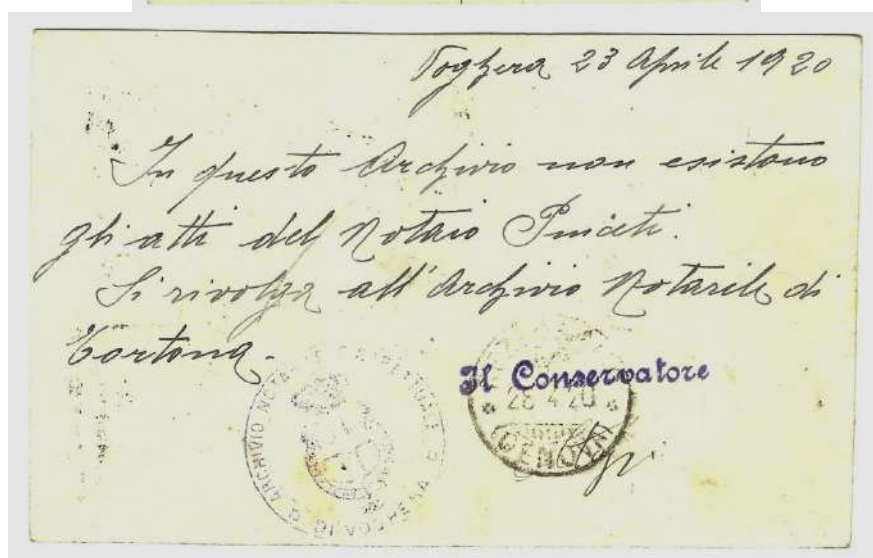 Voghera 23 Aprile 1920
In questo Archivio non esistono
gli atti del Notaio
Si rivolga all' Archivio Notarile di
Tortona.
Il Conservatore
ARCHIVIO NOTARILE
VOGHERA
28 4 20
GENOVA